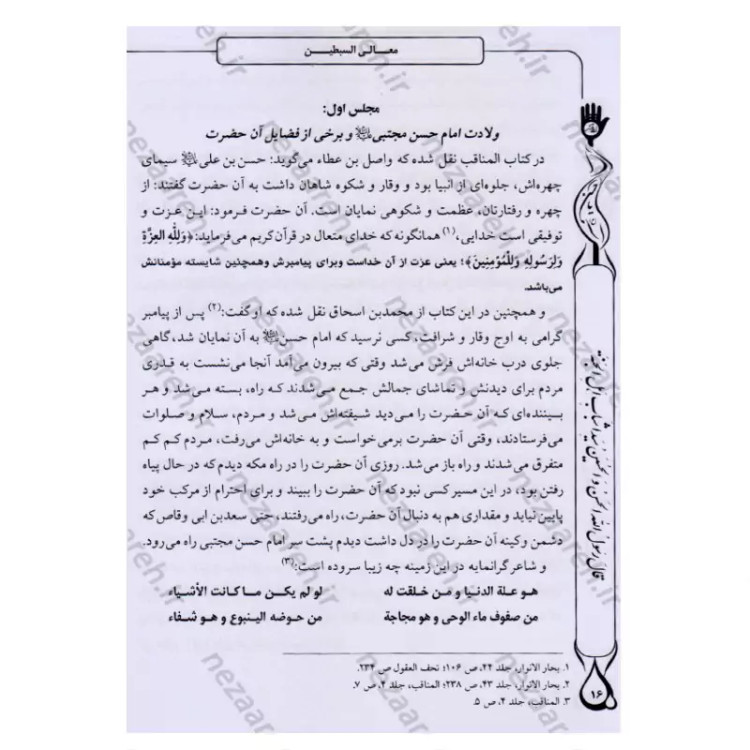 معـالـی السبطیـن
مجلس اول:
ولادت امام حسن مجتبی و برخی از فضایل آن حضرت
در کتاب المناقب نقل شده که واصل بن عطاء می‌گوید: حسن بن علی سیمای
چهره‌اش، جلوه‌ای از انبیا بود و وقار و شکوه شاهان داشت به آن حضرت گفتند: از
چهره و رفتارتان، عظمت و شکوهی نمایان است. آن حضرت فرمود: این عزت و
توفیقی است خدایی،(۱) همانگونه که خدای متعال در قرآن کریم می‌فرماید: ﴿وَلِلَّهِ العِزَّةِ
وَلِرَسُولِهِ وَلِلْمُؤمِنِینَ﴾؛ یعنی عزت از آن خداست وبرای پیامبرش وهمچنین شایسته مؤمنانش
می‌باشد.
و همچنین در این کتاب از محمدبن اسحاق نقل شده که او گفت:(۲) پس از پیامبر
گرامی به اوج وقار و شرافت، کسی نرسید که امام حسن به آن نمایان شد، گاهی
جلوی درب خانه‌اش فرش می‌شد وقتی که بیرون می‌آمد آنجا می‌نشست به قدری
مردم برای دیدنش و تماشای جمالش جمع می‌شدند که راه، بسته می‌شد و هر
بیننده‌ای که آن حضرت را می‌دید شیفته‌اش می‌شد و مردم، سلام و صلوات
می‌فرستادند، وقتی آن حضرت برمی‌خواست و به خانه‌اش می‌رفت، مردم کم کم
متفرق می‌شدند و راه باز می‌شد. روزی آن حضرت را در راه مکه دیدم که در حال پیاه
رفتن بود، در این مسیر کسی نبود که آن حضرت را ببیند و برای احترام از مرکب خود
پایین نیاید و مقداری هم به دنبال آن حضرت، راه می‌رفتند، حتی سعدبن ابی وقاص که
دشمن وکینه آن حضرت را در دل داشت دیدم پشت سر امام حسن مجتبی راه می‌رود.
و شاعر گرانمایه در این زمینه چه زیبا سروده است:(۳)
هو علة الدنیا و من خلقت له لو لم یکن ما کانت الأشیاء
من صفوف ماء الوحی و هو مجاجة من حوضه الینبوع و هو شفاء
۱. بحار الانوار، جلد ۴۴، ص ۱۰۶؛ تحف العقول ص ۲۳۴.
۲. بحار الانوار، جلد ۴۳، ص ۲۳۸؛ المناقب، جلد ۴، ص ۷.
۳. المناقب، جلد ۴، ص ۵.
قال رسول الله الحسن و الحسین سیدا شباب اهل الجنة
۱۶
nezaareh.ir